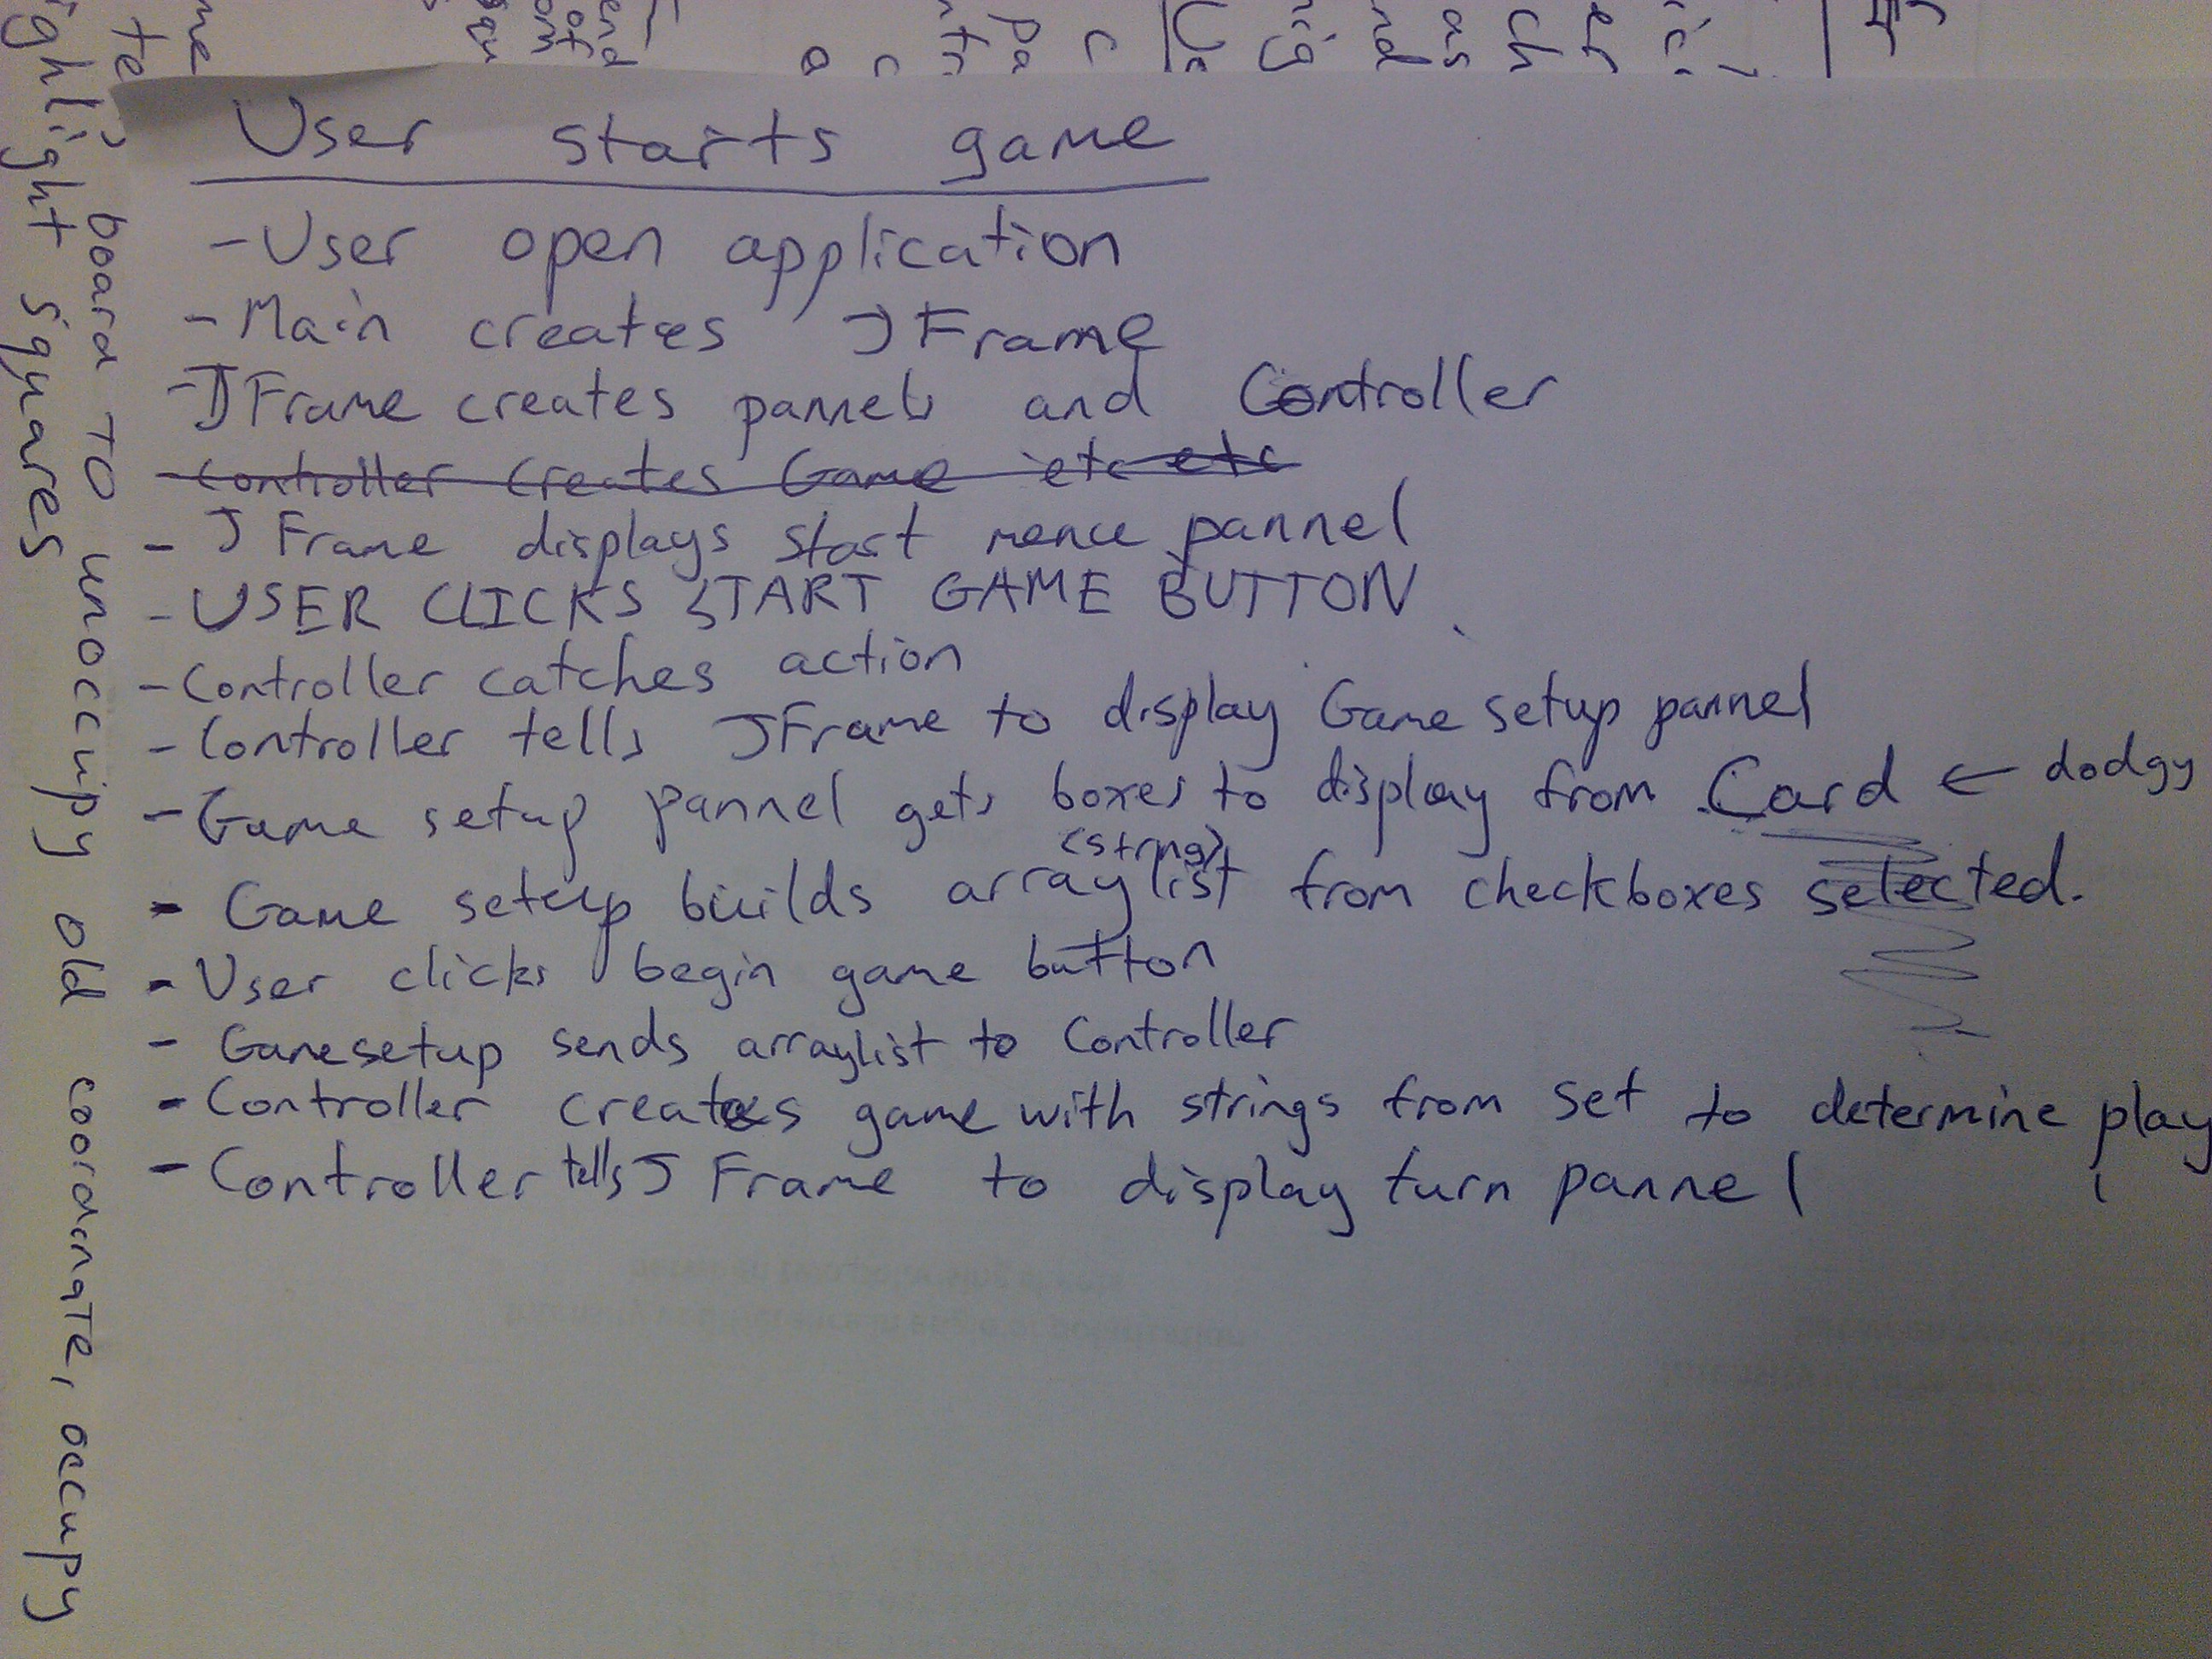 User starts game
- User open application
- Main creates JFrame
- JFrame creates pannels and Controller
- Controller creates Game etc etc
- JFrame displays start menue pannel
- USER CLICKS START GAME BUTTON
- Controller catches action
- Controller tells JFrame to display Game setup pannel
- Game setup pannel gets boxes to display from Card ← dodgy
<string>
- Game setup builds arraylist from checkboxes selected.
- User clicks begin game button
- Gamesetup sends arraylist to Controller
- Controller creates game with strings from set to determine play
- Controller tells JFrame to display turn pannel
board TO unoccupy old coordinate, occupy
squares